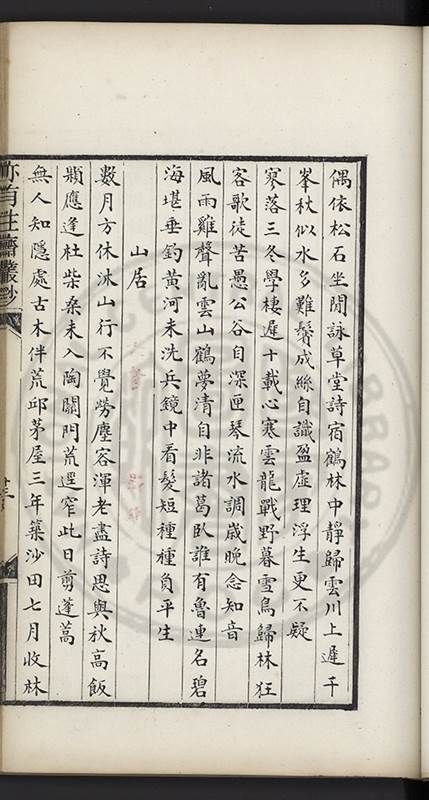 偶依松石坐閒詠草堂詩宿鶴林中靜歸雲川上遲千
峯秋似水多難鬢成絲自識盈虛理浮生更不疑
寥落三冬學棲遲十載心寒雲龍戰野暮雪鳥歸林狂
客歌徒苦愚公谷自深匣琴流水調歲晚念知音
風雨雞聲亂雲山鶴夢清自非諸葛臥誰有魯連名碧
海堪垂釣黃河未洗兵鏡中看髮短種種負平生
山居
數月方休沐山行不覺勞塵容渾老盡詩思與秋高飯
顆應逢杜柴桑未入陶關門荒逕窄此日剪蓬蒿
無人知隱處古木伴荒邱茅屋三年築沙田七月收林
亦有生齋叢鈔